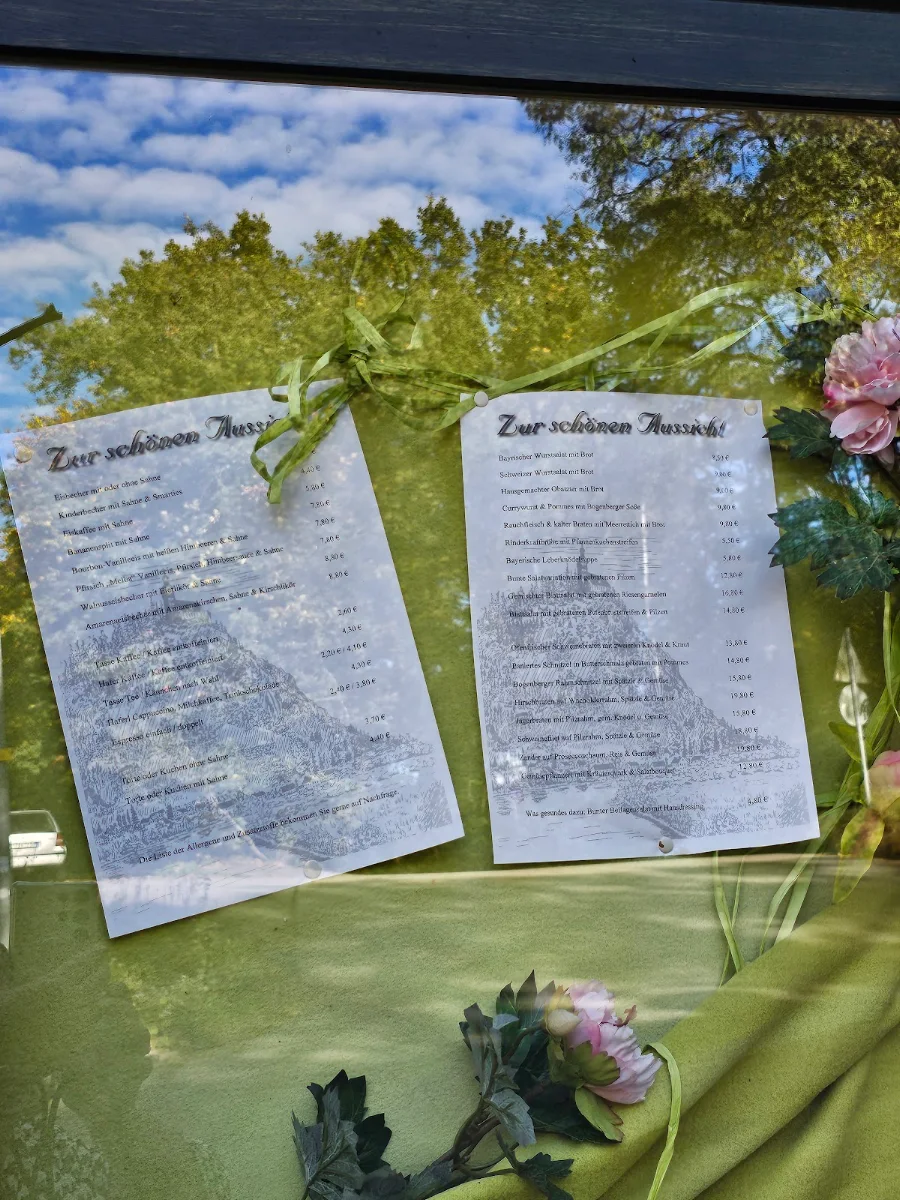 Zur schönen Aussi
Eisbecher mit oder ohne Sahne 4,40 €
Kinderbecher mit Sahne & Smarties 5,80 €
Eiskaffee mit Sahne 7,80 €
Bananensplit mit Sahne 7,80 €
Bourbon Vanilleeis mit heißen Himbeeren & Sahne 7,80 €
Pfirsich „Melba“ Vanilleeis, Pfirsich, Himbeersauce & Sahne 8,80 €
Walnusseisbecher mit Eierlikör & Sahne 8,80 €
Amarenaeisbecher mit Amarenakirschen, Sahne & Kirschlikör
Tasse Kaffee / Kaffee entkoffeiniert 2,60 €
Haferl Kaffee / Kaffee entkoffeiniert 4,30 €
Tasse Tee / Kännchen nach Wahl 2,20 € / 4,10 €
Haferl Cappuccino, Milchkaffee, Trinkschokolade 4,30 €
Espresso einfach / doppelt 2,40 € / 3,80 €
Torte oder Kuchen ohne Sahne 3,70 €
Torte oder Kuchen mit Sahne 4,40 €
Die Liste der Allergene und Zusatzstoffe bekommen Sie gerne auf Nachfrage.
Zur schönen Aussicht
Bayrischer Wurstsalat mit Brot
Schweizer Wurstsalat mit Brot
Hausgemachter Obatzter mit Brot
Currywurst & Pommes mit Bogenberger Soße 9,80 €
Rauchfleisch & kalter Braten mit Meerrettich mit Brot 9,80 €
Rinderkraftbrühe mit Pfannkuchenstreifen 5,50 €
Bayerische Leberknödelsuppe 5,80 €
Bunte Salatvariation mit gebratenen Pilzen 12,80 €
Gemischter Blattsalat mit gebratenen Riesengarnelen 16,80 €
Blattsalat mit gebratenen & Pilzen 14,80 €
Ofenfrischer Schweinebraten mit zweierlei Knödel & Kraut 13,80 €
Paniertes Schnitzel in Butterschmalz gebraten mit Pommes 14,80 €
Bogenberger Rahmschnitzel mit Spätzle & Gemüse 15,80 €
Hirschbraten mit Wacholderrahm, Spätzle & Gemüse 19,80 €
Jägerbraten mit Pilzrahm, gem. Knödel u. Gemüse 15,80 €
auf Pilzrahm, Spätzle & Gemüse
Zander auf Proseccoschaum, Reis & Gemüse 19,80 €
mit Kräuterquark & Salatbouquet 12,80 €
Was gesundes dazu: Bunter Beilagensalat mit Hausdressing 4,80 €